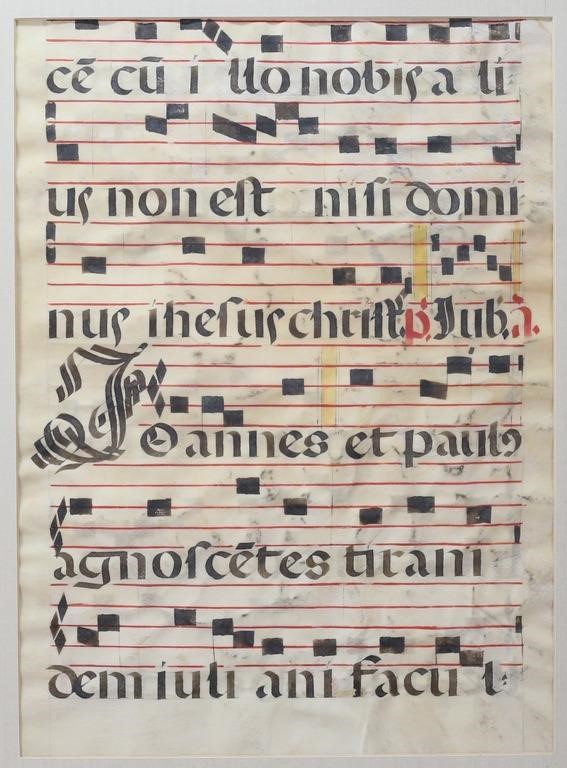 cē cū i llo nobis a li
us non est nisi domi
nus ihesus christ. p̄. Jub. ā.
Joannes et paulꝯ
agnoscētes tirani
dem iuli ani facu l